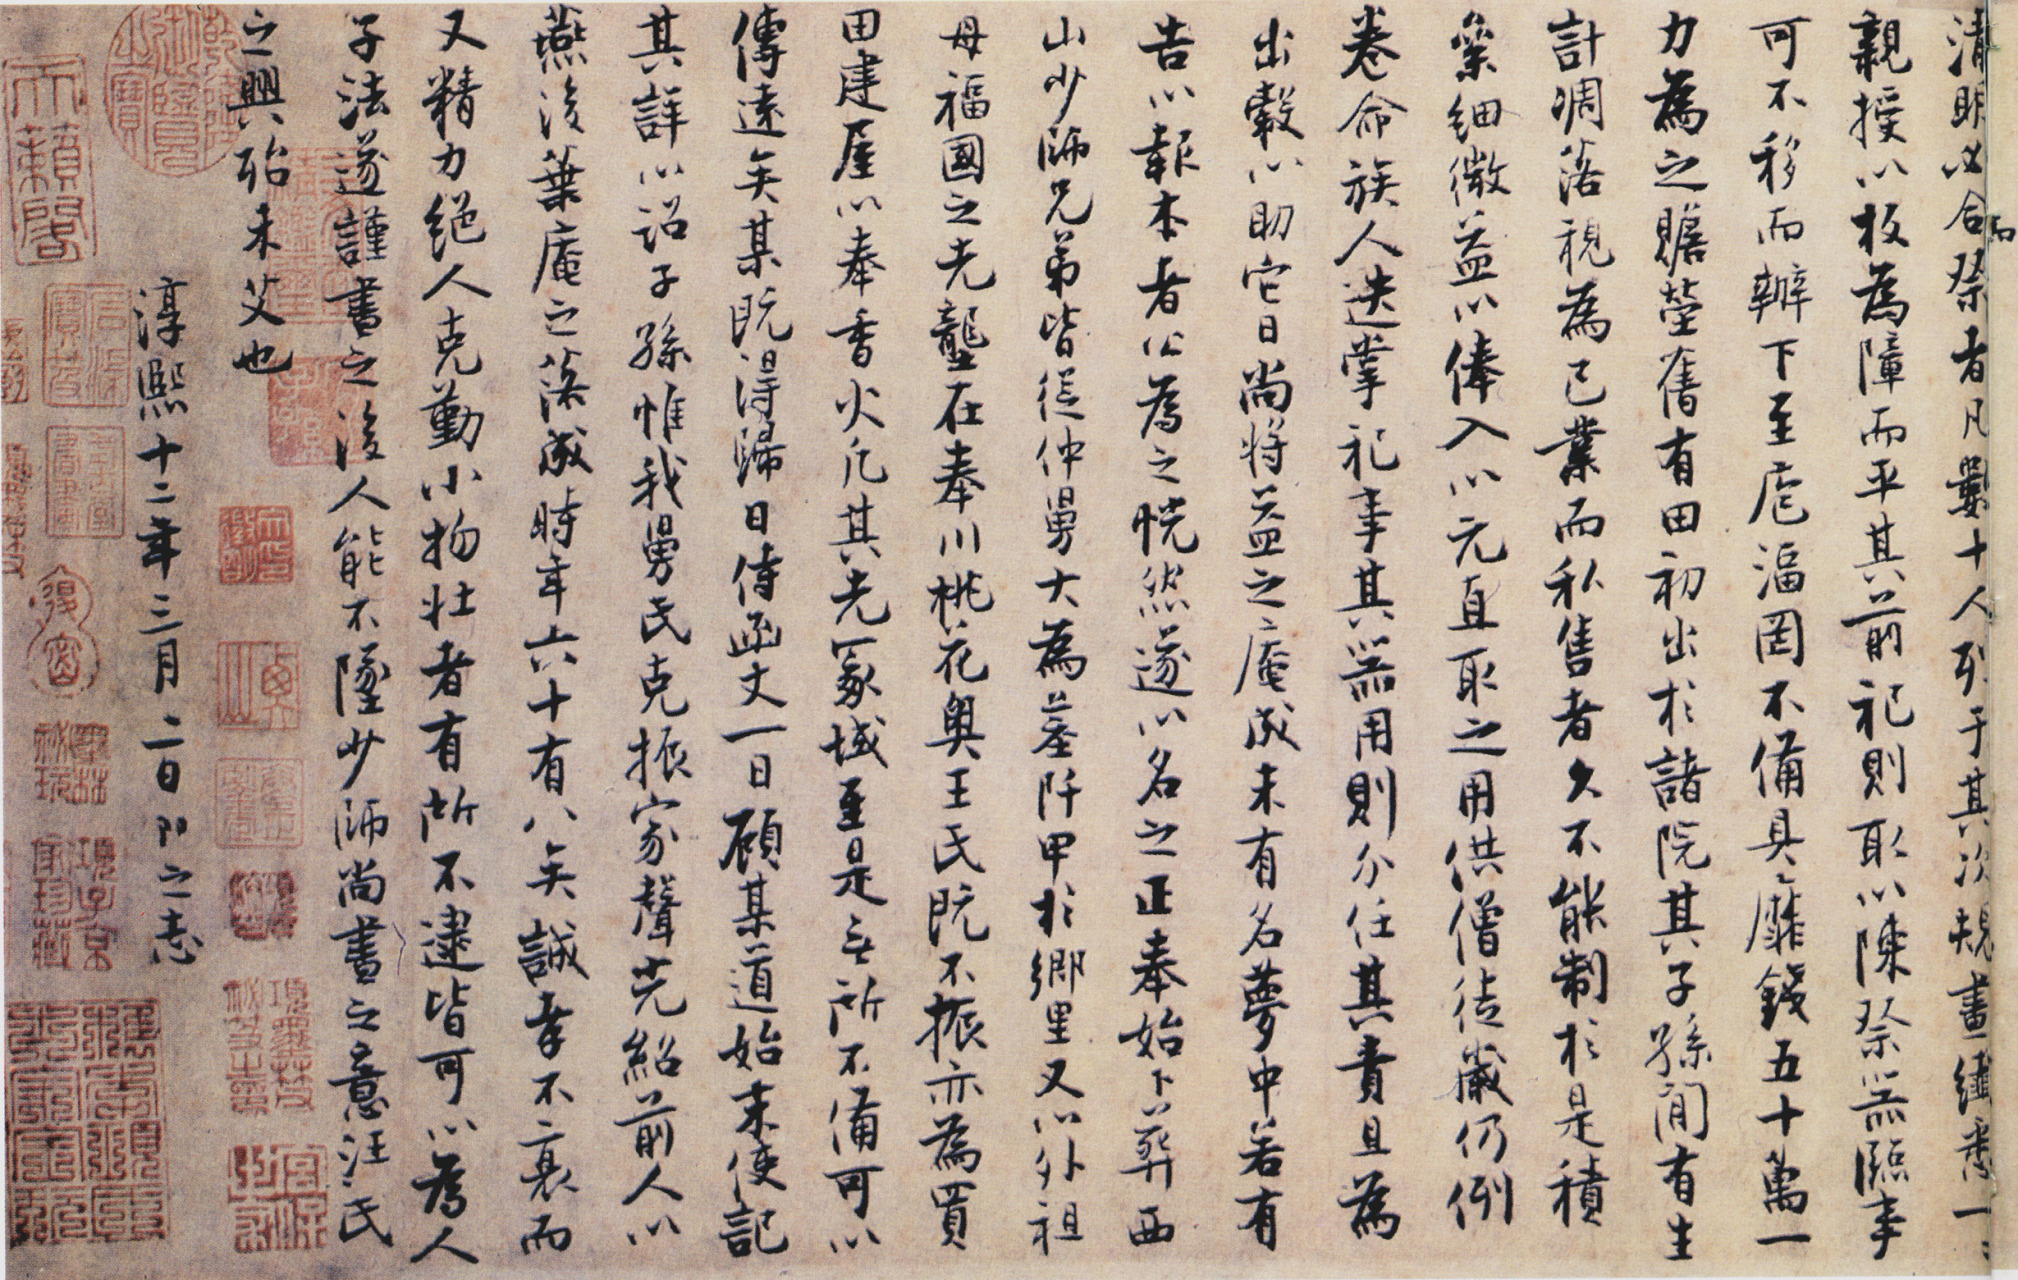 清明必合祭者凡數十人列于其次規畫纖悉一一
親授以板為障而平其前祀則取以陳祭器臨事
可不移而辦下至庖湢罔不備具靡錢五十萬一
力為之贍塋舊有田初出於諸院其子孫間有生
計凋落視為己業而私售者久不能制於是積
絫細微益以俸入以元直取之用供僧徒歲仍例
卷命族人迭掌祀事其器用則分任其責且為
出穀以助它日尚將益之庵成未有名夢中若有
告以報本者公為之恍然遂以名之正奉始卜葬西
山少師兄弟皆從仲舅大為墓阡甲於鄉里又以外祖
母福國之先壟在奉川桃花奧王氏既不振亦為買
田建屋以奉香火凡其先冢域至是無所不備可以
傳遠矣某既得歸日侍函丈一日顧某道始末使記
其詳以詔子孫惟我舅氏克振家聲光紹前人以
燕後葉庵之落成時年六十有八矣誠孝不衰而
又精力絕人克勤小物壯者有所不逮皆可以為人
子法遂謹書之後人能不墜少師尚書之意汪氏
之興殆未艾也
淳熙十二年三月二日 之志
乾隆御覽之寶
天籟閣
項子京家珍藏